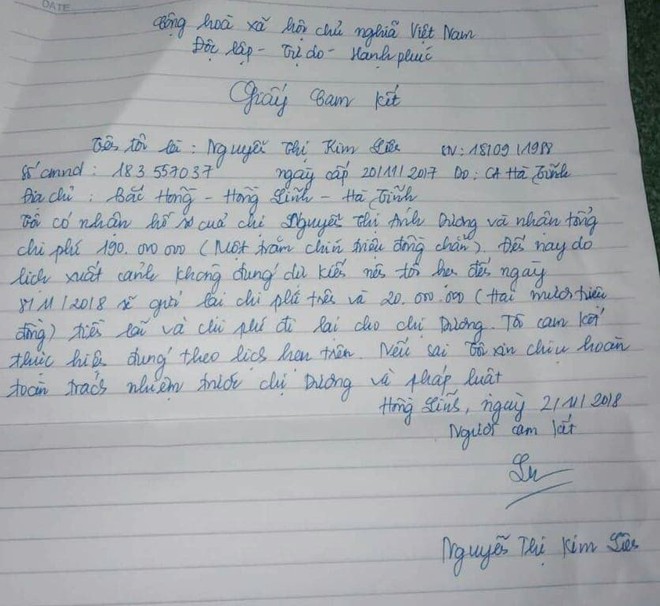 DATE
Cộng hoà xã hội chủ nghĩa Việt Nam
Độc lập - Tự do - Hạnh phúc
Giấy Cam Kết
Tên tôi là : Nguyễn Thị Kim Liên SN : 18/09/1988
Số cmnd : 183 557037 ngày cấp 20/11/2017 Do : CA Hà Tĩnh
Địa chỉ : Bắc Hồng - Hồng Lĩnh - Hà Tĩnh
Tôi có nhận hồ sơ của chị Nguyễn Thị Ánh Dương và nhận tổng
chi phí 190.000.000 (Một trăm chín triệu đồng chẵn). Đến nay do
lịch xuất cảnh không đúng dự kiến nên tôi hẹn đến ngày
8/11/2018 sẽ gửi lại chi phí trên và 20.000.000 (Hai mươi triệu
đồng) tiền lãi và chi phí đi lại cho chị Dương. Tôi cam kết
thực hiện đúng theo lịch hẹn trên. Nếu sai Tôi xin chịu hoàn
toàn trách nhiệm trước chị Dương và pháp luật
Hồng Lĩnh, ngày 2/11/2018
Người cam kết
Nguyễn Thị Kim Liên